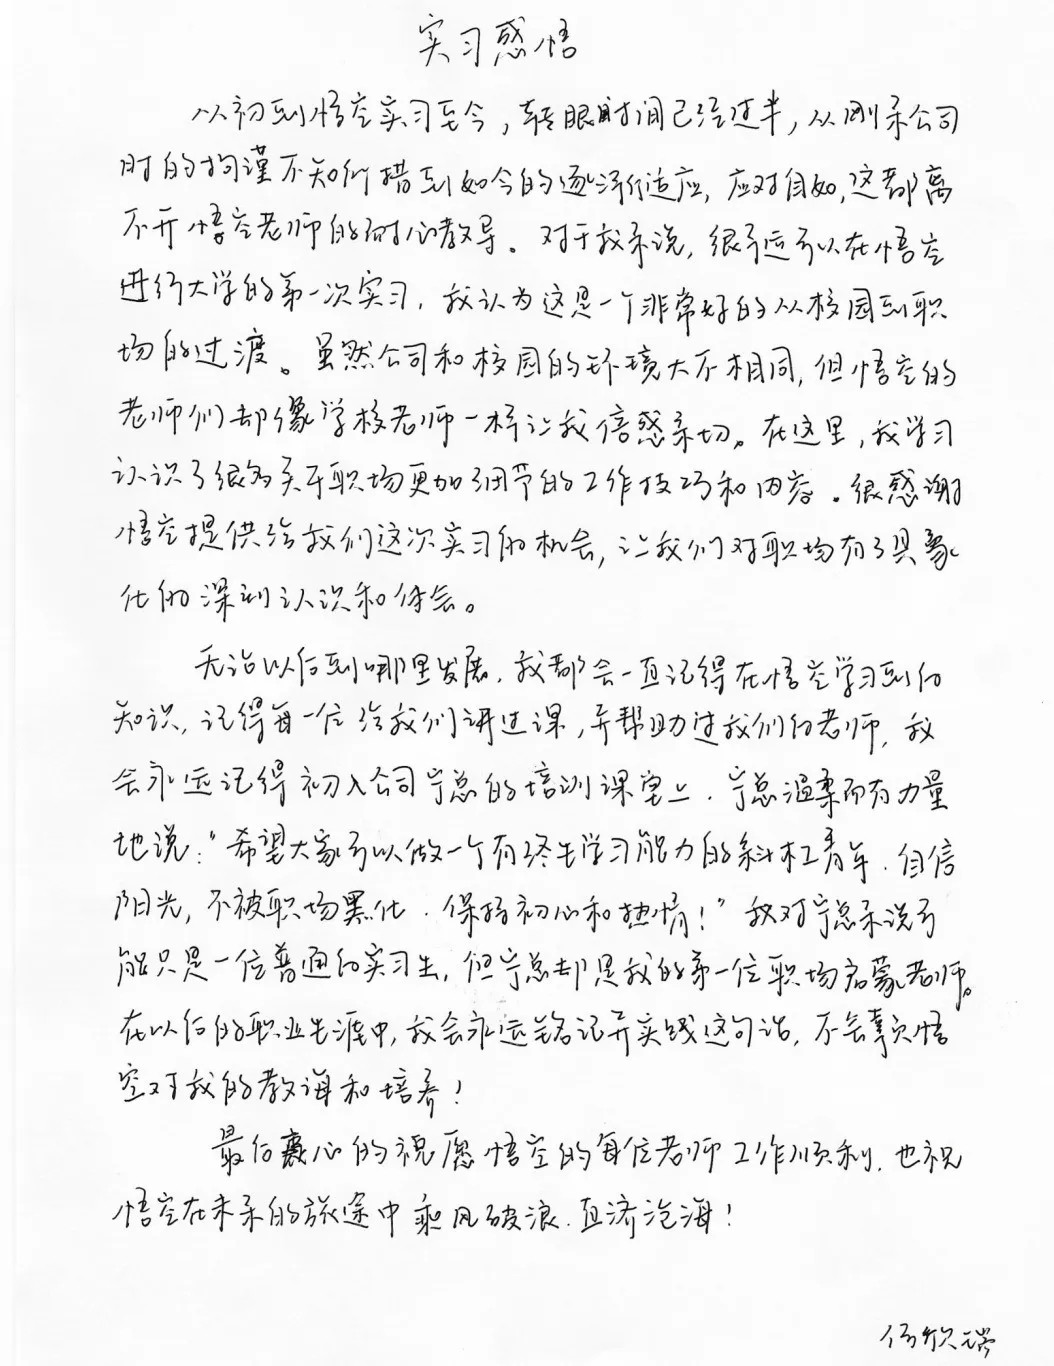 实习感悟
从初到悟空实习至今，转眼时间已经过半，从刚来公司
时的拘谨不知所措到如今的逐渐适应，应对自如，这都离
不开悟空老师的耐心教导。对于我来说，很幸运可以在悟空
进行大学的第一次实习，我认为这是一个非常好的从校园到职
场的过渡。虽然公司和校园的环境大不相同，但悟空的
老师们却像学校老师一样让我倍感亲切。在这里，我学习
认识了很多关于职场更加细节的工作技巧和内容。很感谢
悟空提供给我们这次实习的机会，让我们对职场有了具象
化的深刻认识和体会。
无论以后到哪里发展，我都会一直记得在悟空学习到的
知识，记得每一位给我们讲过课，并帮助过我们的老师，我
会永远记得初入公司宁总的培训课堂上，宁总温柔而有力量
地说：“希望大家可以做一个有终生学习能力的斜杠青年，自信
阳光，不被职场黑化，保持初心和热情！”我对宁总来说可
能只是一位普通的实习生，但宁总却是我的第一位职场启蒙老师。
在以后的职业生涯中，我会永远铭记并实践这句话，不会辜负悟
空对我的教诲和培养！
最后衷心的祝愿悟空的每位老师工作顺利，也祝
悟空在未来的旅途中乘风破浪，直济沧海！